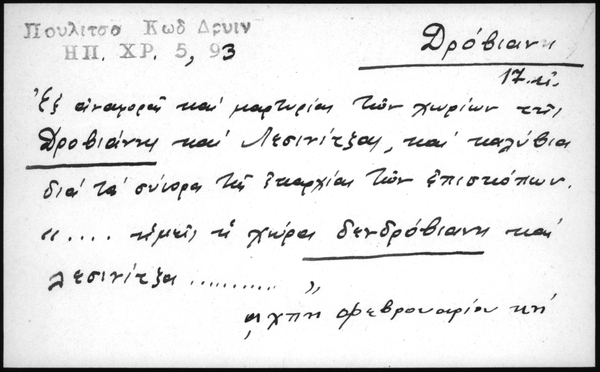 Πουλιτσα Κωδ Δρυιν
ΗΠ. ΧΡ. 5, 93
Δρόβιανη
17. αἰ.
Ἐξ ἀναφορᾶς καὶ μαρτυρίας τῶν χωρίων τῆς
Δροβιάνης καὶ Λεσινίτζας, καὶ καλύβια
διὰ τὰ σύνορα τῆς ἐπαρχίας τῶν ἐπισκόπων.
" .... ἡμεῖς ἡ χώρα δενδρόβιανη καὶ
λεσινίτζα .......... "
͵αχπη φεβρουαρίου κη